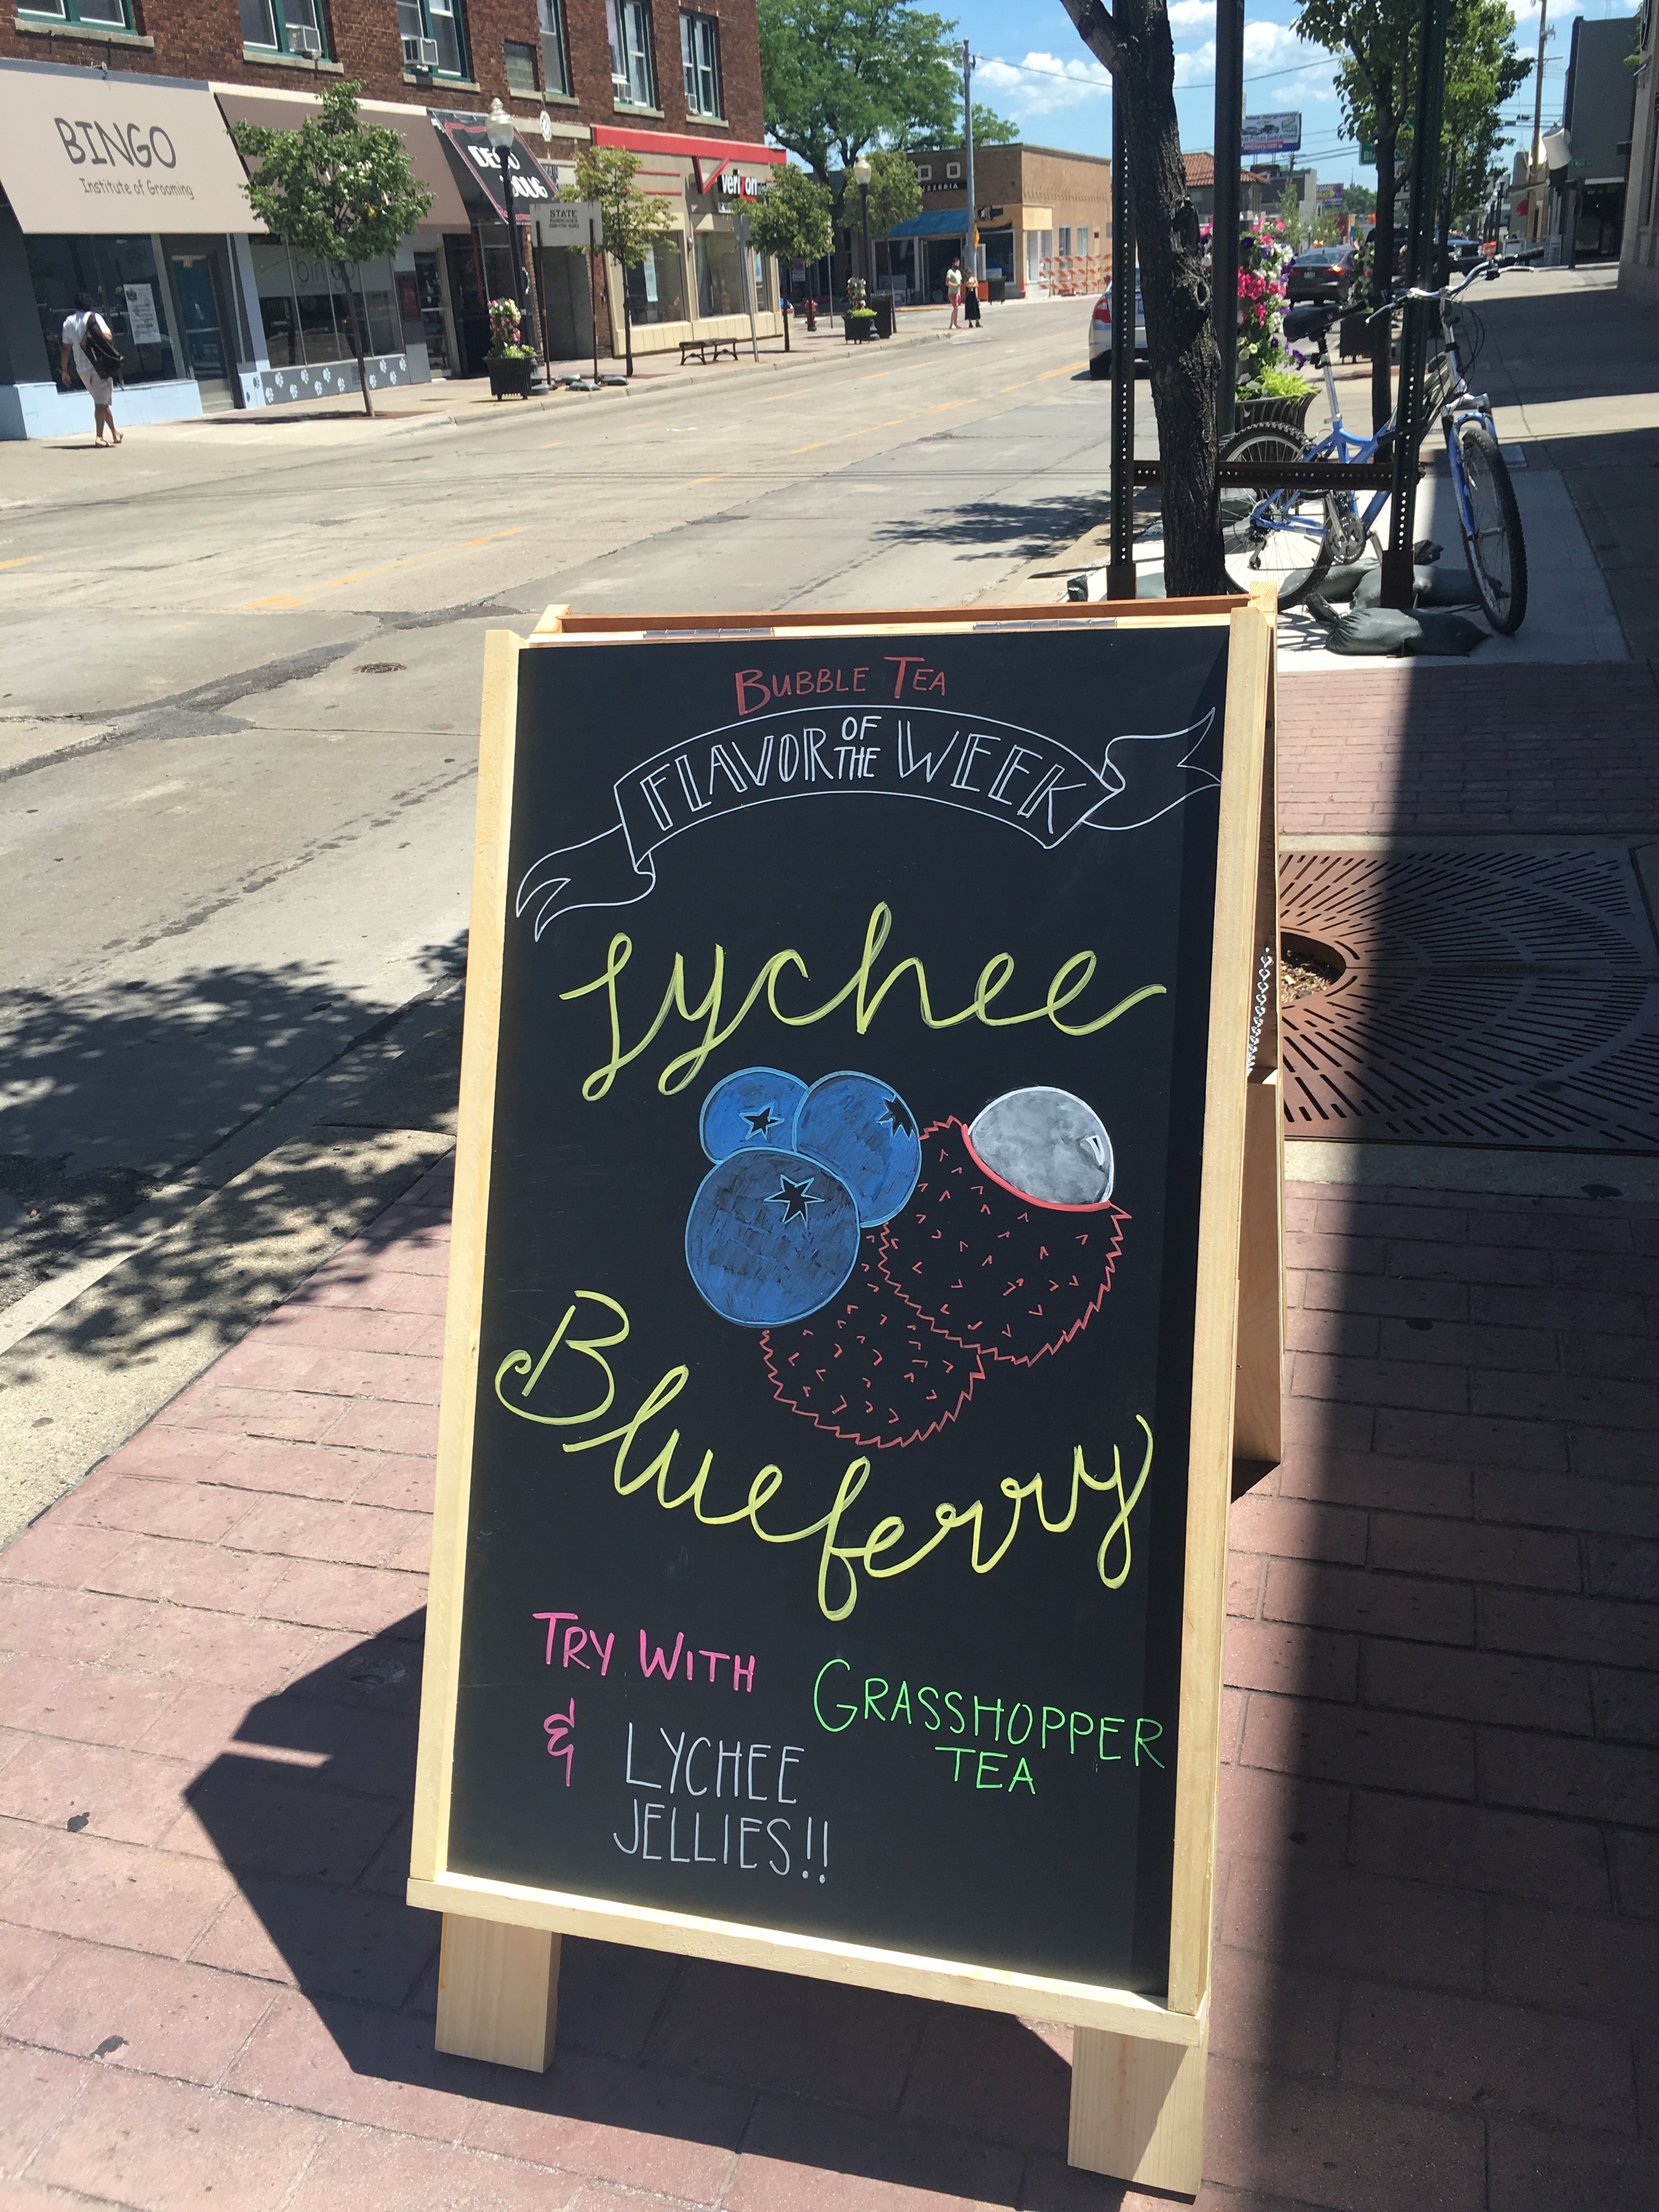 BINGO
Institute of Grooming
STATE
verizon
BUBBLE TEA
FLAVOR OF THE WEEK
Lychee
Blueberry
TRY WITH
GRASSHOPPER
TEA
& LYCHEE
JELLIES!!